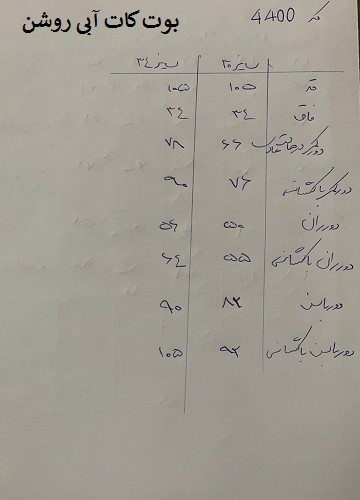 بوت کات آبی روشن
کد 4400
سایز ۳۰ سایز ۳۴
قد ۱۰۵ ۱۰۵
فاق ۳۴ ۳۴
دور کمر در حالت عادی ۶۶ ۷۸
دور کمر با کشسانی ۷۶ ۹۰
دور ران ۵۰ ۵۶
دور ران با کشسانی ۵۵ ۶۴
دور باسن ۸۲ ۹۰
دور باسن با کشسانی ۹۲ ۱۰۵